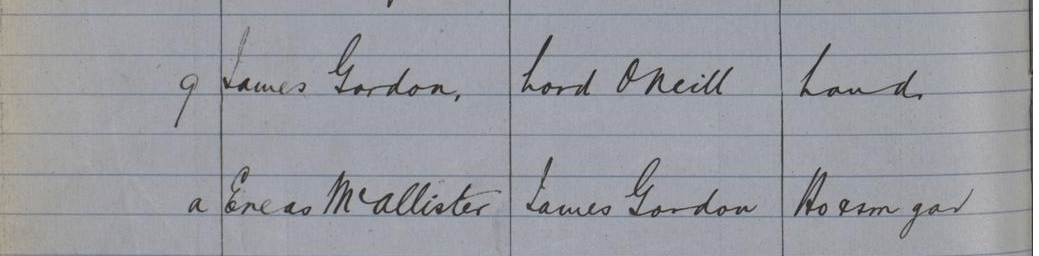 9 James Gordon, Lord ONeill Land.
a Eneas McAllister James Gordon Ho & sm gar